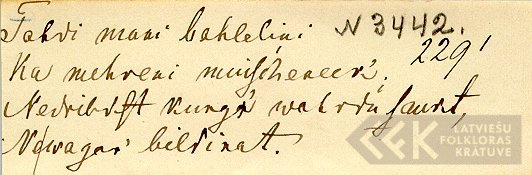 Tahdi mani bahlelini N 3442.
Ka mehreni muischeneeki. 2291
Nedrihkst kungs wahrdu saukt,
Ne wagars bildinat.
LATVIEŠU
FOLKLORAS
KRĀTUVE